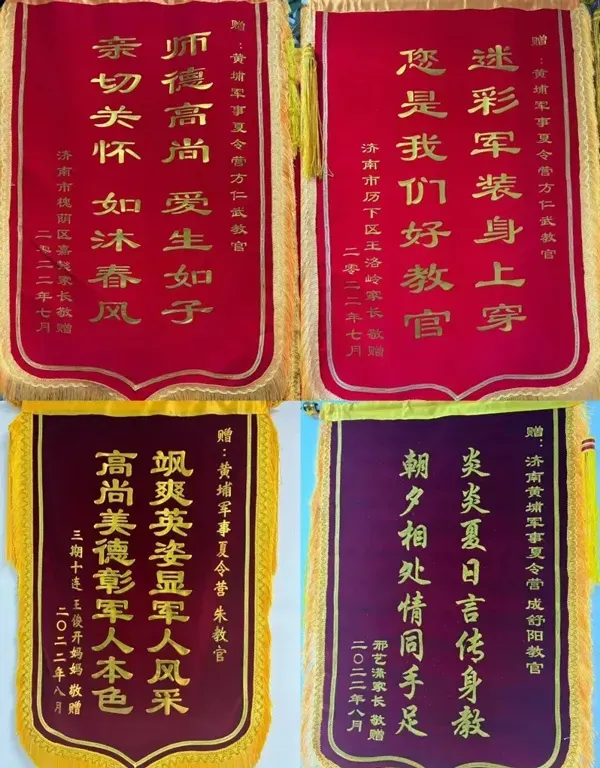 赠：黄埔军事夏令营方仁武教官
师德高尚 爱生如子
亲切关怀 如沐春风
济南市槐荫区嘉懿家长敬赠
二零二二年七月
赠：黄埔军事夏令营方仁武教官
迷彩军装身上穿
您是我们好教官
济南市历下区王洛岭家长敬赠
二零二二年七月
赠：黄埔军事夏令营 朱教官
飒爽英姿显军人风采
高尚美德彰军人本色
三期十连 王俊开妈妈 敬赠
二〇二二年八月
赠：济南黄埔军事夏令营 成舒阳教官
炎炎夏日言传身教
朝夕相处情同手足
邢艺潇家长 敬赠
二〇二二年八月